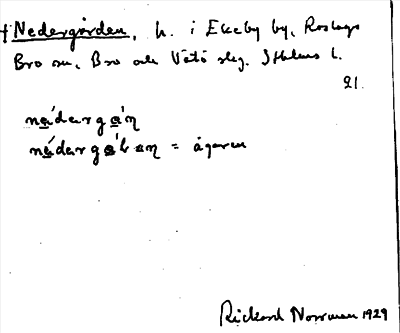 † Nedergården, h. i Ekeby by, Roslags
Bro sn, Bro och Vätö skg. Sthlms l.
21.
nä́dargá̀n
nä́dargá̀ban = ägaren
Rickard Norrman 1929